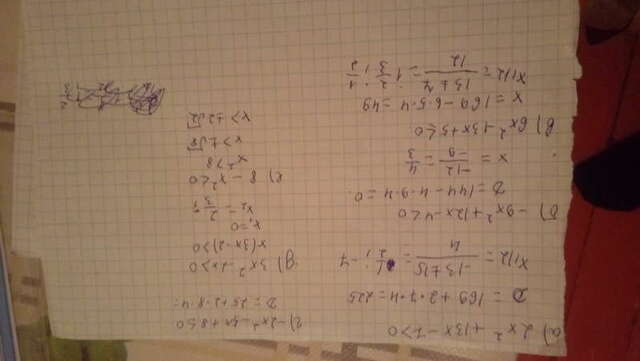 а) 2x² + 13x - 7 > 0
D = 169 + 2·7·4 = 225
x1/2 = -13 ± 15 / 4 = 1/2 ; -7
б) -9x² + 12x - 4 < 0
D = 144 - 4·9·4 = 0
x = -12 / -9 = 4/3
в) 6x² - 13x + 5 ≤ 0
x = 169 - 6·5·4 = 49
x1/2 = 13 ± 7 / 12 = 1 2/3 ; 1/2
г) -2x² - 5x + 8 ≤ 0
D = 25 + 2·8·4 =
д) 3x² - 2x > 0
x(3x - 2) > 0
x₁ = 0
x₂ = 2/3
е) 8 - x² < 0
x² > 8
x > ±√8
x > ±2√2